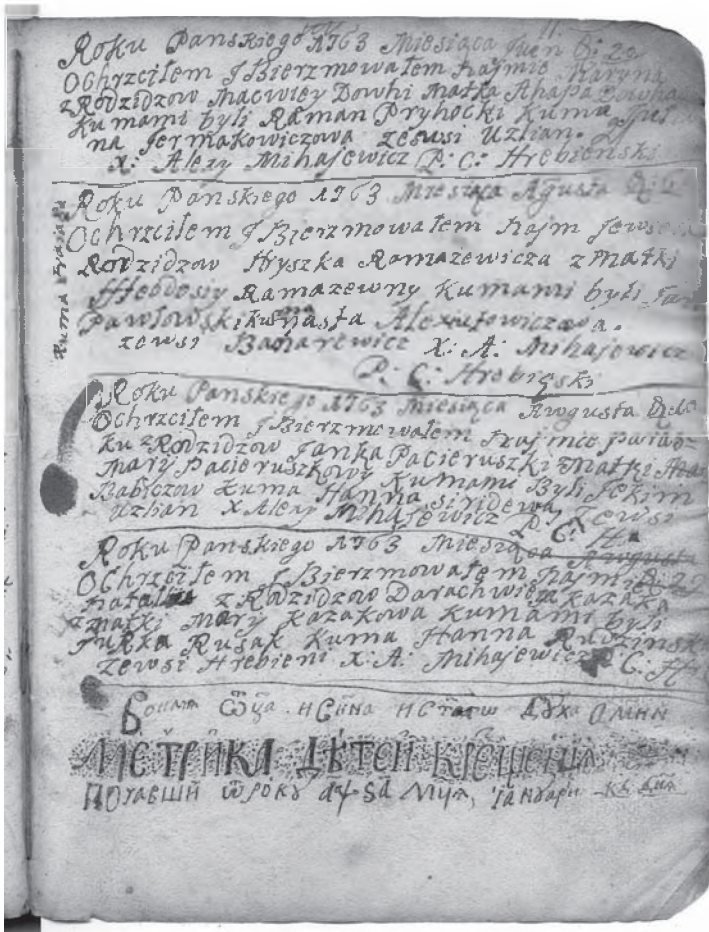 Roku Panskiego 1763 Miesiąca Juen D: 20
Ochrzciłem J Bierzmowałem Najmie Maryna
z Rodzidzow Macwiey Dowhi Matka Ahapa
Kumami byli Raman Pryhocki Kuma
na Jermakowiczowa zesusi Uzlian.
X: Alexy Mihajewicz P: C: Hrebienski
Roku Panskiego 1763 Miesiąca Agusta
Ochrzciłem J Bierzmowałem Najm Jewse
Rodzidzow Hryszka Ramazewicza z Matki
Ramazewny Kumami byli
Pawłowski Alexiutowiczowa.
zewsi X: A: Mihajewicz
P: C: Hrebięski
Kuma
Roku Panskiego 1763 Miesiąca Awgusta
Ochrzciłem J Bierzmowałem Najmie
ku z Rodzidzow Janka Pacieruszki Matki
Mary Pacieruszkowy Kumami Byli Jekim
Babiczow Kuma Hanna zewsi
Uzlian X Alexy Mihajewicz P: C: H
Roku Panskiego 1763 Miesiąca Awgusta
Ochrzciłem J Bierzmowałem Najmie D: 27
Natalia z Rodzidzow Darachwieja Kazaka
z Matki Mary Kazakowa Kumami byli
Jurka Rusak Kuma Hanna Rudzinsk
zewsi Hrebieni X: A: Mihajewicz P C: H
Воимя Ѿца и Сн҃на и Ст҃аго Дꙋха Аминь
МЕТРИКА ДѢТЕЙ КРЕЩЕНІѦ
Почавши ѿ рокꙋ аѱѯд мц҃а, іанꙋари кд днѧ